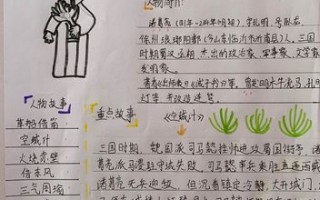 人物简介:
诸葛亮(181年-234年10月8日),字孔明,号卧龙,
徐州琅琊阳都(今山东临沂市沂南县)人,三国
时期蜀汉丞相 杰出的政治家、军事家、文学家
发明家.
《出师表》《诫子书》等.曾发明木牛流马、孔明
灯等 并改造连弩.
人物故事
草船借箭
空城计
火烧赤壁
借东风
三气周瑜
重点故事
《空城计》
三国时期,魏国派司马懿挂帅进攻蜀国街亭,诸
葛亮派马谡驻守失败,司马懿率兵乘胜直逼西城
诸葛亮无兵迎敌,但沉着镇定冷静,大开城门,